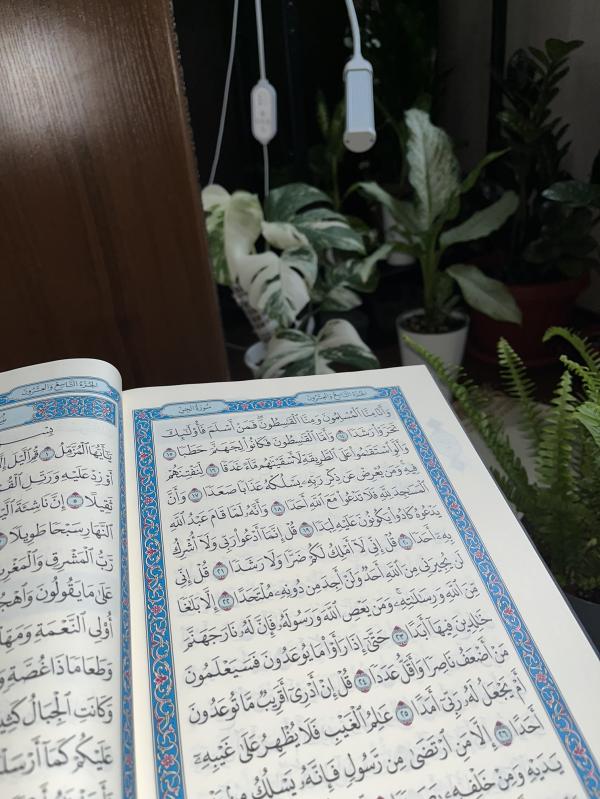 الجُزْءُ التَّاسِعُ وَالعِشْرُونَ
سُورَةُ الجِنِّ
وَأَنَّا مِنَّا ٱلْمُسْلِمُونَ وَمِنَّا ٱلْقَٰسِطُونَ فَمَنْ أَسْلَمَ فَأُوْلَٰٓئِكَ
تَحَرَّوْاْ رَشَدًا ١٤ وَأَمَّا ٱلْقَٰسِطُونَ فَكَانُواْ لِجَهَنَّمَ حَطَبًا ١٥
وَأَلَّوِ ٱسْتَقَٰمُواْ عَلَى ٱلطَّرِيقَةِ لَأَسْقَيْنَٰهُم مَّآءً غَدَقًا ١٦ لِّنَفْتِنَهُمْ
فِيهِ وَمَن يُعْرِضْ عَن ذِكْرِ رَبِّهِۦ يَسْلُكْهُ عَذَابًا صَعَدًا ١٧ وَأَنَّ
ٱلْمَسَٰجِدَ لِلَّهِ فَلَا تَدْعُواْ مَعَ ٱللَّهِ أَحَدًا ١٨ وَأَنَّهُۥ لَمَّا قَامَ عَبْدُ ٱللَّهِ
يَدْعُوهُ كَادُواْ يَكُونُونَ عَلَيْهِ لِبَدًا ١٩ قُلْ إِنَّمَآ أَدْعُواْ رَبِّي وَلَآ أُشْرِكُ
بِهِۦٓ أَحَدًا ٢٠ قُلْ إِنِّي لَآ أَمْلِكُ لَكُمْ ضَرًّا وَلَا رَشَدًا ٢١ قُلْ إِنِّي
لَن يُجِيرَنِي مِنَ ٱللَّهِ أَحَدٌ وَلَنْ أَجِدَ مِن دُونِهِۦ مُلْتَحَدًا ٢٢ إِلَّا بَلَٰغًا
مِّنَ ٱللَّهِ وَرِسَٰلَٰتِهِۦ وَمَن يَعْصِ ٱللَّهَ وَرَسُولَهُۥ فَإِنَّ لَهُۥ نَارَ جَهَنَّمَ
خَٰلِدِينَ فِيهَآ أَبَدًا ٢٣ حَتَّىٰٓ إِذَا رَأَوْاْ مَا يُوعَدُونَ فَسَيَعْلَمُونَ
مَنْ أَضْعَفُ نَاصِرًا وَأَقَلُّ عَدَدًا ٢٤ قُلْ إِنْ أَدْرِيٓ أَقَرِيبٌ مَّا تُوعَدُونَ
أَمْ يَجْعَلُ لَهُۥ رَبِّيٓ أَمَدًا ٢٥ عَٰلِمُ ٱلْغَيْبِ فَلَا يُظْهِرُ عَلَىٰ غَيْبِهِۦٓ
أَحَدًا ٢٦ إِلَّا مَنِ ٱرْتَضَىٰ مِن رَّسُولٍ فَإِنَّهُۥ يَسْلُكُ مِنۢ بَيْنِ
يَدَيْهِ وَمِنْ خَلْفِهِۦ
الجُزْءُ التَّاسِعُ وَالعِشْرُونَ
يَٰٓأَيُّهَا ٱلْمُزَّمِّلُ ١ قُمِ ٱلَّيْلَ
أَوْ زِدْ عَلَيْهِ وَرَتِّلِ
ثَقِيلًا ٥ إِنَّ نَاشِئَةَ
ٱلنَّهَارِ سَبْحًا طَوِيلًا ٧
رَّبُّ ٱلْمَشْرِقِ وَٱلْمَغْرِبِ
عَلَىٰ مَا يَقُولُونَ
أُوْلِي ٱلنَّعْمَةِ
وَطَعَامًا ذَا غُصَّةٍ
وَكَانَتِ ٱلْجِبَالُ
عَلَيْكُمْ كَمَآ